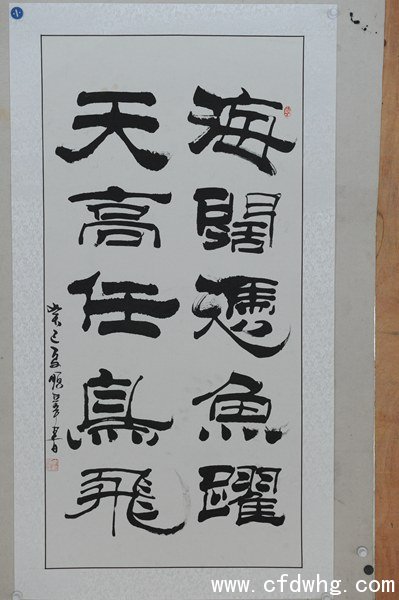 海闊憑魚躍
天高任鳥飛
癸巳夏
www.cfdwhg.com